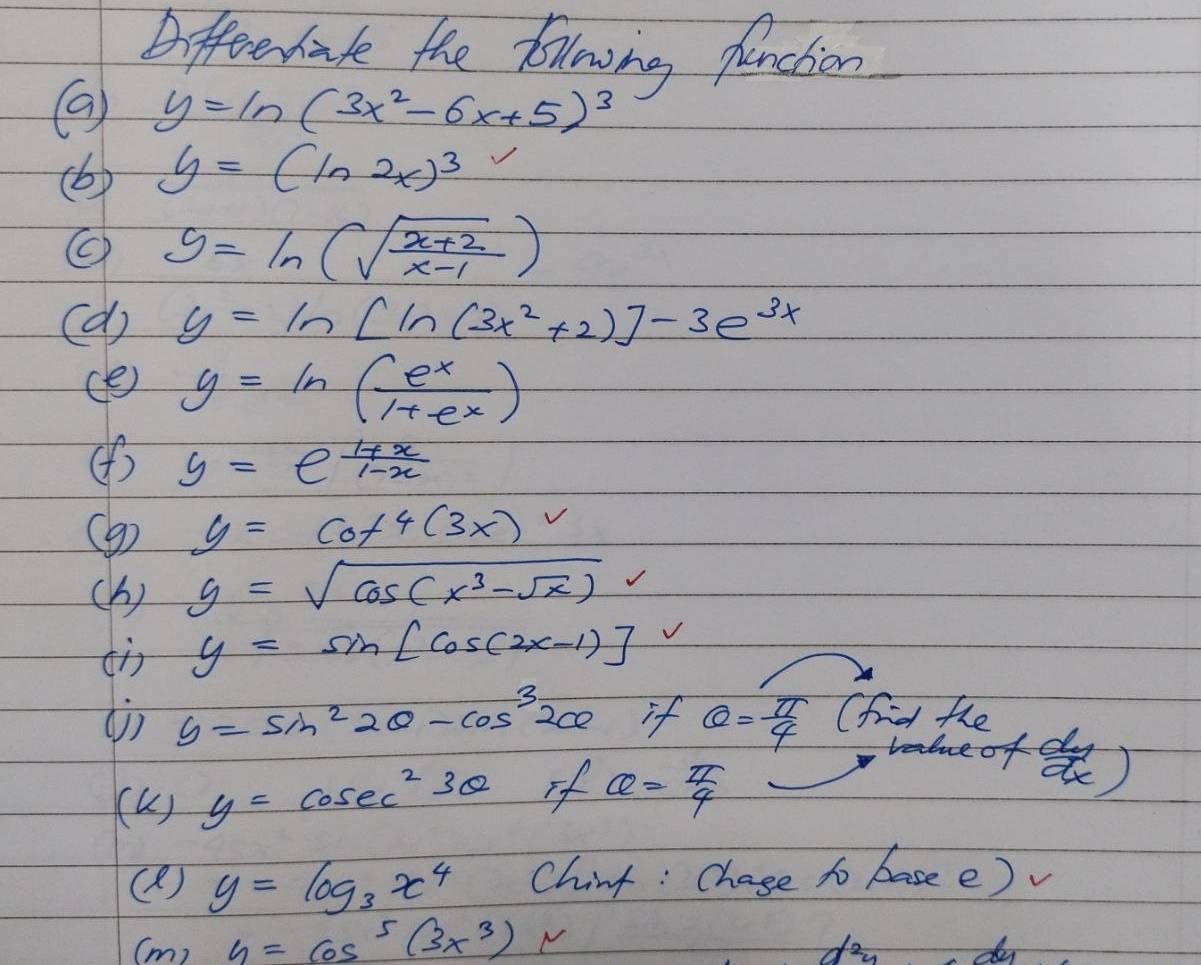 Differentiate the following function
(a) y = ln (3x² - 6x + 5)³
(b) y = (ln 2x)³ ✓
(c) y = ln (√((x+2)/(x-1)))
(d) y = ln [ln (3x² + 2)] - 3e^(3x)
(e) y = ln (e^x/(1+e^x))
(f) y = e^((1+x)/(1-x))
(g) y = Cot⁴(3x) ✓
(h) y = √(cos(x³ - √x)) ✓
(i) y = sin [cos(2x-1)] ✓
(j) y = sin² 2θ - cos³ 2θ if θ = π/4 (find the
value of dy/dx)
(k) y = cosec² 3θ if θ = π/4
(l) y = log₃ x⁴ (hint : Chage to base e) ✓
(m) y = cos⁵ (3x³) ✓
d²y dy